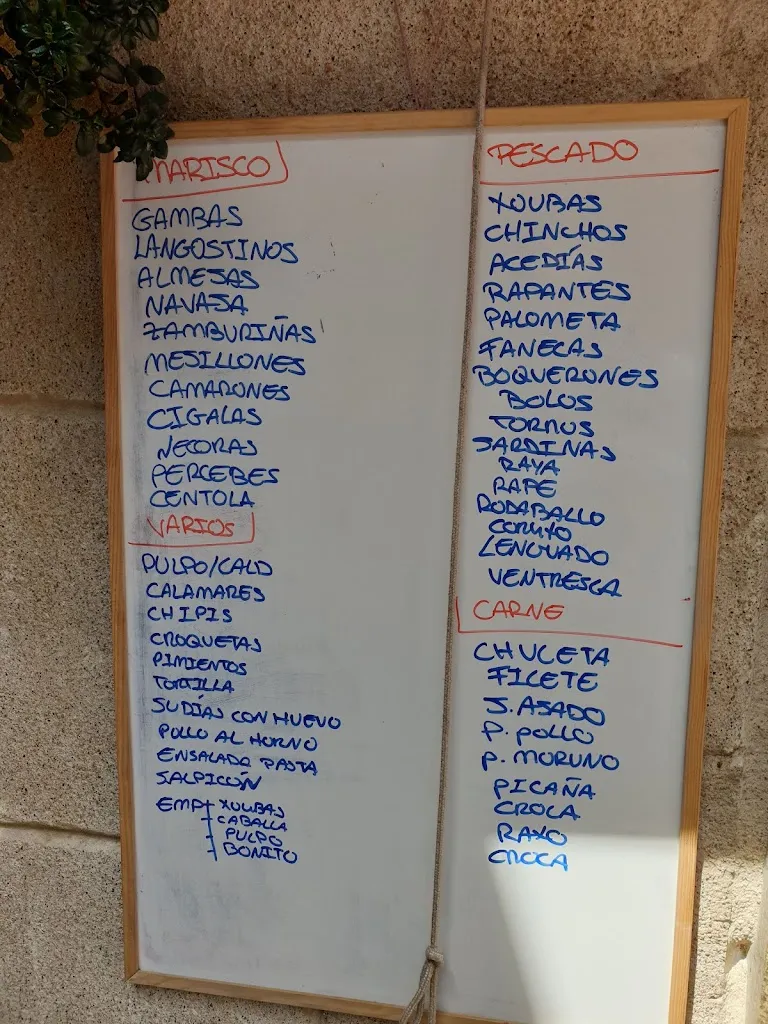 MARISCO
GAMBAS
LANGOSTINOS
ALMEJAS
NAVAJA
ZAMBURIÑAS
MEJILLONES
CAMARONES
CIGALAS
NECORAS
PERCEBES
CENTOLA
VARIOS
PULPO/CALD
CALAMARES
CHIPIS
CROQUETAS
PIMIENTOS
TORTILLA
JUDÍAS CON HUEVO
POLLO AL HORNO
ENSALADA PASTA
SALPICÓN
EMP XOUBAS
CABALLA
PULPO
BONITO
PESCADO
XOUBAS
CHINCHOS
ACEDÍAS
RAPANTES
PALOMETA
FANECAS
BOQUERONES
BOLOS
TORNOS
SARDINAS
RAYA
RAPE
RODABALLO
CORUXO
LENGUADO
VENTRESCA
CARNE
CHULETA
FILETE
J. ASADO
P. POLLO
P. MORUNO
PICAÑA
CROCA
RAXO
CROCA